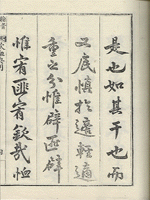 是也如其干也而
又底慎於適輕適
重之分惟辟匪辟
惟宥匪宥欽哉恤